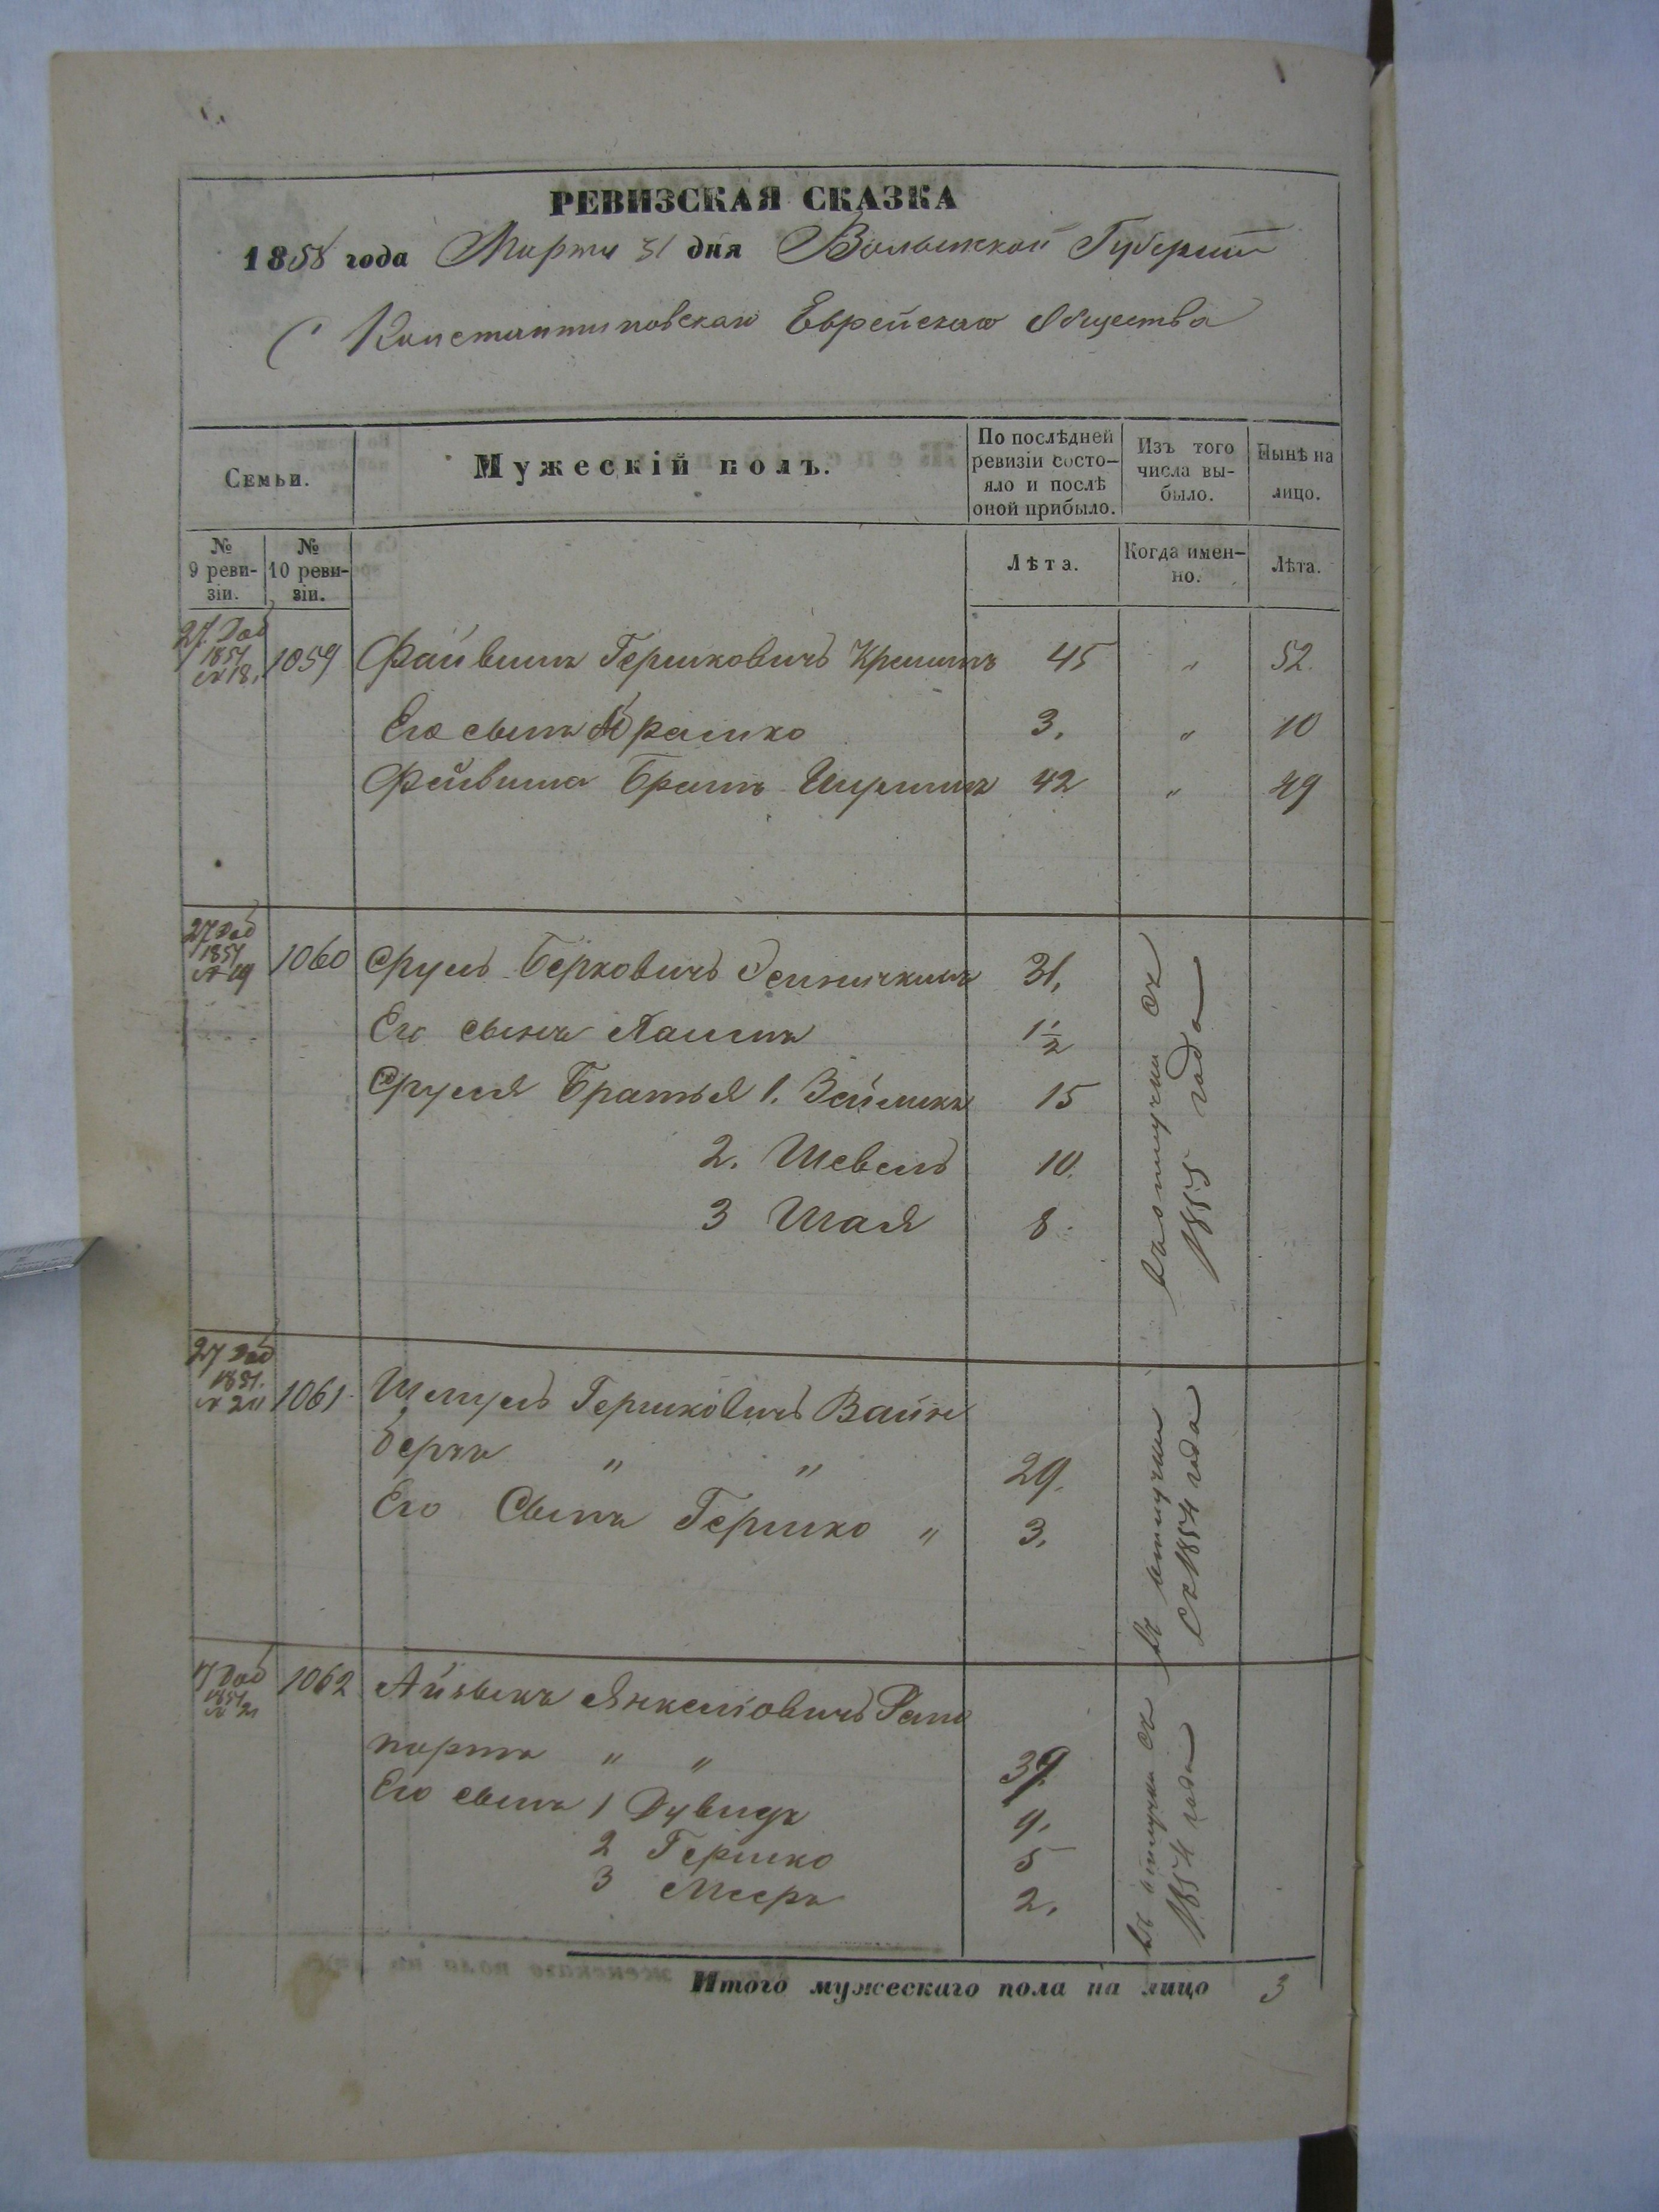 РЕВИЗСКАЯ СКАЗКА
1858 года Марта 31 дня Волынской Губерніи
Константиновскаго Еврейскаго Общества
Семьи.
Мужескій полъ.
По послѣдней ревизіи состо-
яло и послѣ
оной прибыло.
Изъ того
числа вы-
было.
Нынѣ на
лицо.
№
9 реви-
зіи.
№
10 реви-
зіи.
Лѣта.
Когда имен-
но.
Лѣта.
27 Доб
1851
№ 18.
1059 Файвишъ Гершковичъ 45 " 52.
Его сынъ Срамко 3. " 10
Файвиша Братъ 42 " 49
27 Доб
1851
№ 19
1060 Сруль Берковичъ 31.
Его сынъ 1½
Сруля Братья 1. Зейликъ 15
2. Шевель 10.
3 Шая 8.
въ отлучки съ
1855 года
27 Доб
1851.
№ 20
1061 Шмуль Гершковичъ Вайн
бергъ " " 29.
Его Сынъ Гершко " 3.
въ отлучки
съ 1854 года
7 Доб
1851
№ 21
1062 Айзыкъ Янкелiовичъ Рапо
портъ " " 39.
Его сынъ 1 Дувидъ 9.
2 Гершко 5
3 Мееръ 2.
въ отлучки съ
1854 года
Итого мужескаго пола на лицо 3